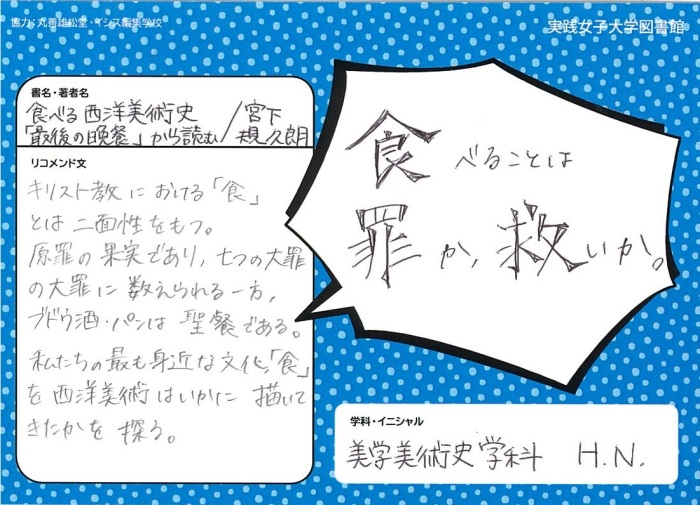 協力:丸善雄松堂・イシス編集学校
実践女子大学図書館
書名・著者名
食べる西洋美術史 / 宮下
「最後の晩餐」から読む / 規久朗
リコメンド文
キリスト教における「食」
とは二面性をもつ。
原罪の果実であり、七つの大罪
の大罪に数えられる一方、
ブドウ酒・パンは聖餐である。
私たちの最も身近な文化「食」
を西洋美術はいかに描いて
きたかを探る。
食べることは
罪か、救いか。
学科・イニシャル
美学美術史学科 H.N.